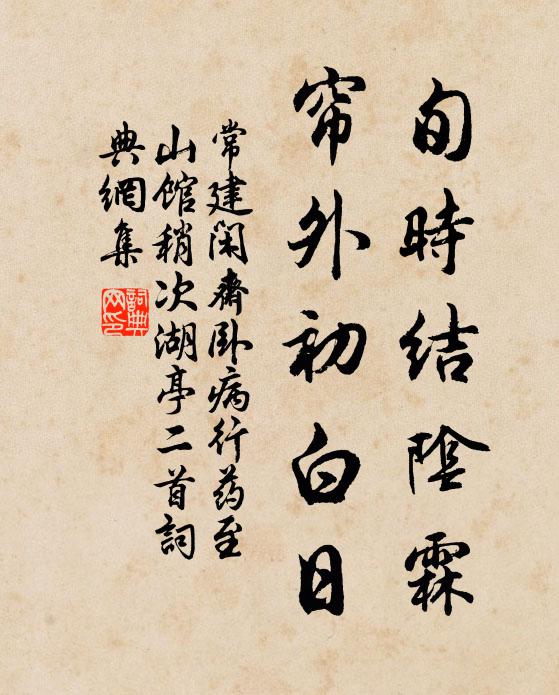 旬時結陰霖
帘外初白日
常建閑齋卧病行药至
山館稍次湖亭二首詞
典網集
詞典
网印